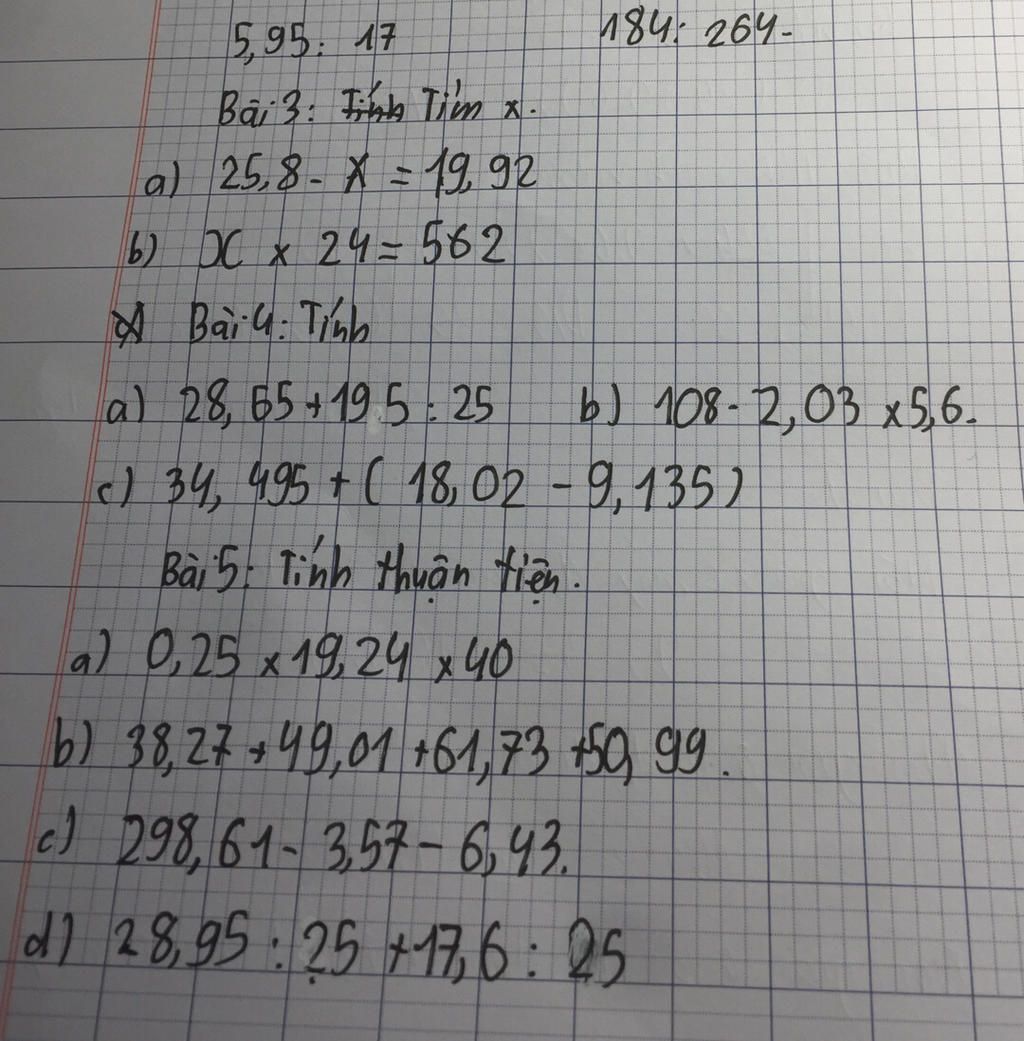 5,95 : 17 184 : 264-
Bài 3 : Tính Tìm x.
a) 25,8 - x = 19,92
b) x × 24 = 562
Bài 4 : Tính
a) 28,65 + 19 5 : 25 b) 108 - 2,03 × 5,6.
c) 34,495 + ( 18,02 - 9,135 )
Bài 5 : Tính thuận tiện.
a) 0,25 × 19,24 × 40
b) 38,27 + 49,01 + 61,73 + 50,99.
c) 298,61 - 3,57 - 6,43.
d) 28,95 : 25 + 17,6 : 25